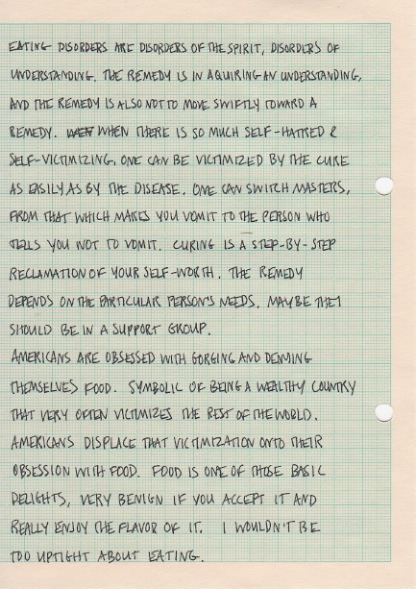 EATING DISORDERS ARE DISORDERS OF THE SPIRIT, DISORDERS OF
UNDERSTANDING. THE REMEDY IS IN AQUIRING AN UNDERSTANDING,
AND THE REMEDY IS ALSO NOT TO MOVE SWIFTLY TOWARD A
REMEDY. WHEN THERE IS SO MUCH SELF-HATRED &
SELF-VICTIMIZING, ONE CAN BE VICTIMIZED BY THE CURE
AS EASILY AS BY THE DISEASE. ONE CAN SWITCH MASTERS,
FROM THAT WHICH MAKES YOU VOMIT TO THE PERSON WHO
TELLS YOU NOT TO VOMIT. CURING IS A STEP-BY-STEP
RECLAMATION OF YOUR SELF-WORTH. THE REMEDY
DEPENDS ON THE PARTICULAR PERSON'S NEEDS. MAYBE THEY
SHOULD BE IN A SUPPORT GROUP.
AMERICANS ARE OBSESSED WITH GORGING AND DENYING
THEMSELVES FOOD. SYMBOLIC OF BEING A WEALTHY COUNTRY
THAT VERY OFTEN VICTIMIZES THE REST OF THE WORLD.
AMERICANS DISPLACE THAT VICTIMIZATION ONTO THEIR
OBSESSION WITH FOOD. FOOD IS ONE OF THOSE BASIC
DELIGHTS, VERY BENIGN IF YOU ACCEPT IT AND
REALLY ENJOY THE FLAVOR OF IT. I WOULDN'T BE
TOO UPTIGHT ABOUT EATING.